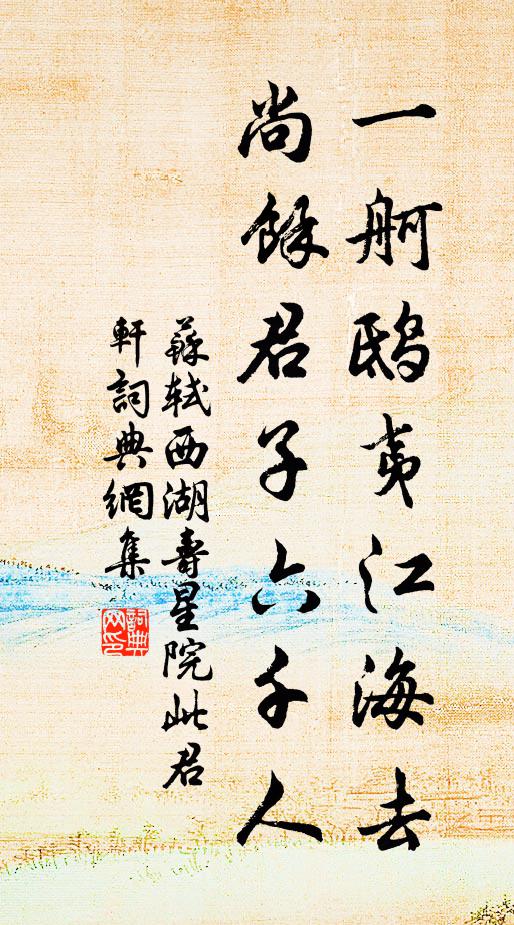 一舸鴟夷江海去
尚餘君子六千人
蘇軾西湖壽星院此君
軒詞典網集
詞典
网印